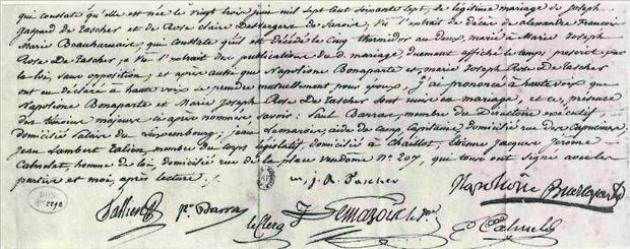 qui constate qu'elle est née le vingt trois juin mil sept cent soixante sept, de légitime mariage de Joseph
Gaspard de Tascher et de Rose Claire Desvergers de Sanois, Vu l'extrait de décès de Alexandre François
Marie Beauharnais, qui constate qu'il est décédé le cinq thermidor an deux, marié à Marie Joseph
Rose De Tascher; Vu l'extrait des publications du d. mariage, duement affiché le temps prescrit par
la loi, sans opposition; et après aussi que Napolione Bonaparte et marie Joseph Rose De Tascher
ont eu déclaré à haute voix se prendre mutuellement pour époux. J'ai prononcé à haute voix que
Napolione Bonaparte et Marie Joseph Rose De Tascher sont unis en mariage, et ce, en présence
des témoins majeurs ci après nommés, savoir: Paul Barras, membre du Directoire exécutif,
domicilié Palais du Luxembourg; jean Lemarois, aide de camp, Capitaine, domicilié rue des Capucines;
jean Lambert Talien, membre du corps législatif, domicilié à Chaillot, Etienne Jacques Jérome
Calmelet, homme de loi, domicilié rue de la place vendome N° 207, qui tous ont signé avec les
parties et moi, après lecture ./.
m. j. R. Tascher
Napolione Buonaparte
Tallien P. Barras leClerq J Lemarois
C Calmelet